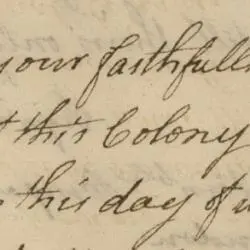 your faithfull
this Colony
this day of